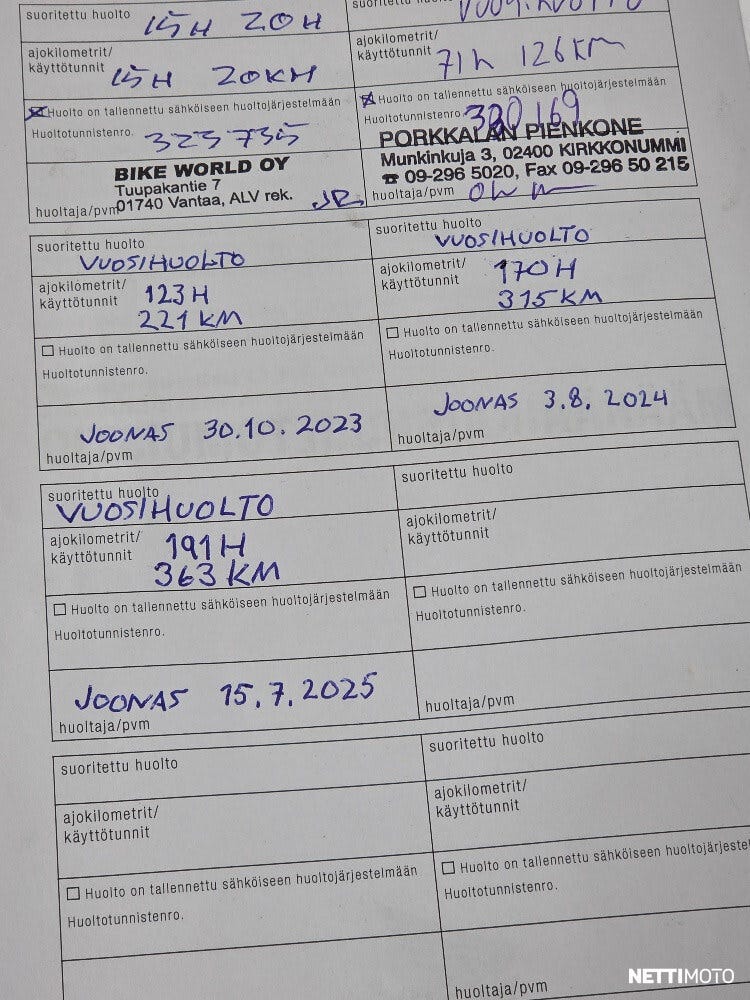 suoritettu huolto 15H 20H
ajokilometrit/
käyttötunnit 15H 20KH
Huolto on tallennettu sähköiseen huoltojärjestelmään
Huoltotunnistenro. 323735
BIKE WORLD OY
Tuupakantie 7
01740 Vantaa, ALV rek.
huoltaja/pvm
suoritettu huolto
ajokilometrit/
käyttötunnit 71h 126KM
Huolto on tallennettu sähköiseen huoltojärjestelmään
Huoltotunnistenro.
PORKKALAN PIENKONE
Munkinkuja 3, 02400 KIRKKONUMMI
☎ 09-296 5020, Fax 09-296 50 215
huoltaja/pvm
suoritettu huolto
VUOSIHUOLTO
ajokilometrit/
käyttötunnit 123H
221 KM
Huolto on tallennettu sähköiseen huoltojärjestelmään
Huoltotunnistenro.
JOONAS 30.10.2023
huoltaja/pvm
suoritettu huolto
VUOSIHUOLTO
ajokilometrit/
käyttötunnit 170H
315 KM
Huolto on tallennettu sähköiseen huoltojärjestelmään
Huoltotunnistenro.
JOONAS 3.8.2024
huoltaja/pvm
suoritettu huolto
VUOSIHUOLTO
ajokilometrit/
käyttötunnit 191H
363 KM
Huolto on tallennettu sähköiseen huoltojärjestelmään
Huoltotunnistenro.
JOONAS 15.7.2025
huoltaja/pvm
suoritettu huolto
ajokilometrit/
käyttötunnit
Huolto on tallennettu sähköiseen huoltojärjestelmään
Huoltotunnistenro.
huoltaja/pvm
suoritettu huolto
ajokilometrit/
käyttötunnit
Huolto on tallennettu sähköiseen huoltojärjestelmään
Huoltotunnistenro.
suoritettu huolto
ajokilometrit/
käyttötunnit
Huolto on tallennettu sähköiseen
Huoltotunnistenro.
huoltaja/pvm
NETTIMOTO